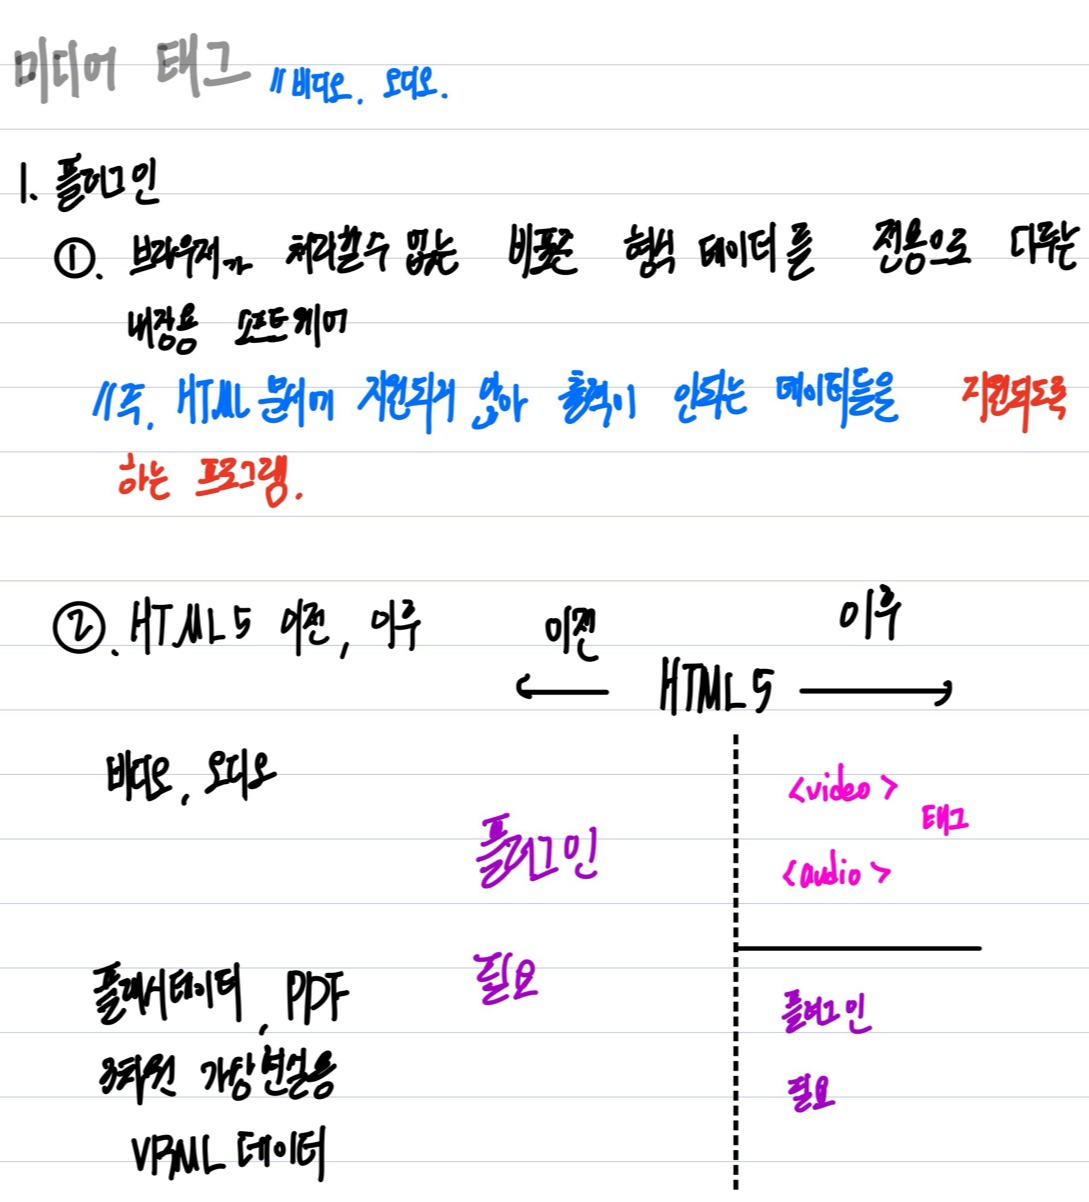 미디어 태그 // 비디오, 오디오.
1. 플러그인
①. 브라우저가 처리할수 없는 비표준 형식 데이터를 전용으로 다루는
내장용 소프트웨어
// 즉, HTML 문서에 지원되지 않아 출력이 안되는 데이터들을 지원되도록
하는 프로그램.
②. HTML5 이전, 이후
이전 이후
← HTML5 →
비디오, 오디오
<video>
태그
플러그인
<audio>
필요
플래시데이터, PDF
플러그인
3차원 가상현실용
필요
VRML 데이터